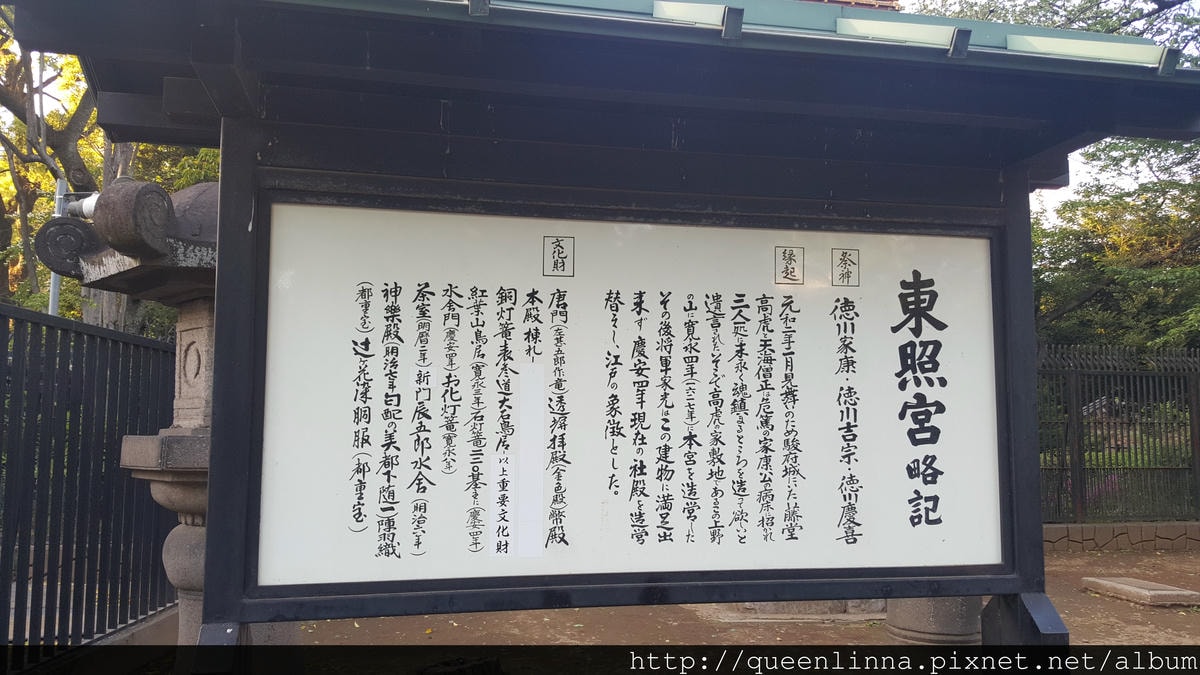 東照宮略記
祭神
徳川家康・徳川吉宗・徳川慶喜
縁起
元和二年二月見舞いのため駿府城にいた藤堂
高虎と天海僧正は危篤の家康公の病床に招かれ
三人一処に末永く魂鎮まるところを造って欲しいと
遺言された。そこで高虎の家敷地であるこの上野
の山に寛永四年(一六二七年)に本宮を造営した
その後将軍家光はこの建物に満足出
来ず慶安四年現在の社殿を造営
替えし、江戸の象徴とした。
文化財
唐門(左甚五郎作竜)透塀拝殿(金色殿)幣殿
本殿棟札
銅灯篭表参道大石鳥居・以上重要文化財
紅葉山鳥居(寛永三年)石灯篭二三〇基
水舎門(慶安四年)お化灯篭(寛永八年)
茶室(明暦二年)新門辰五郎水舎(明治六年)
神樂殿(明治七年勾配の美都下随一)陣羽織
(都重宝)辻ヶ花染胴服(都重宝)
http://queenlinna.pixnet.net/album